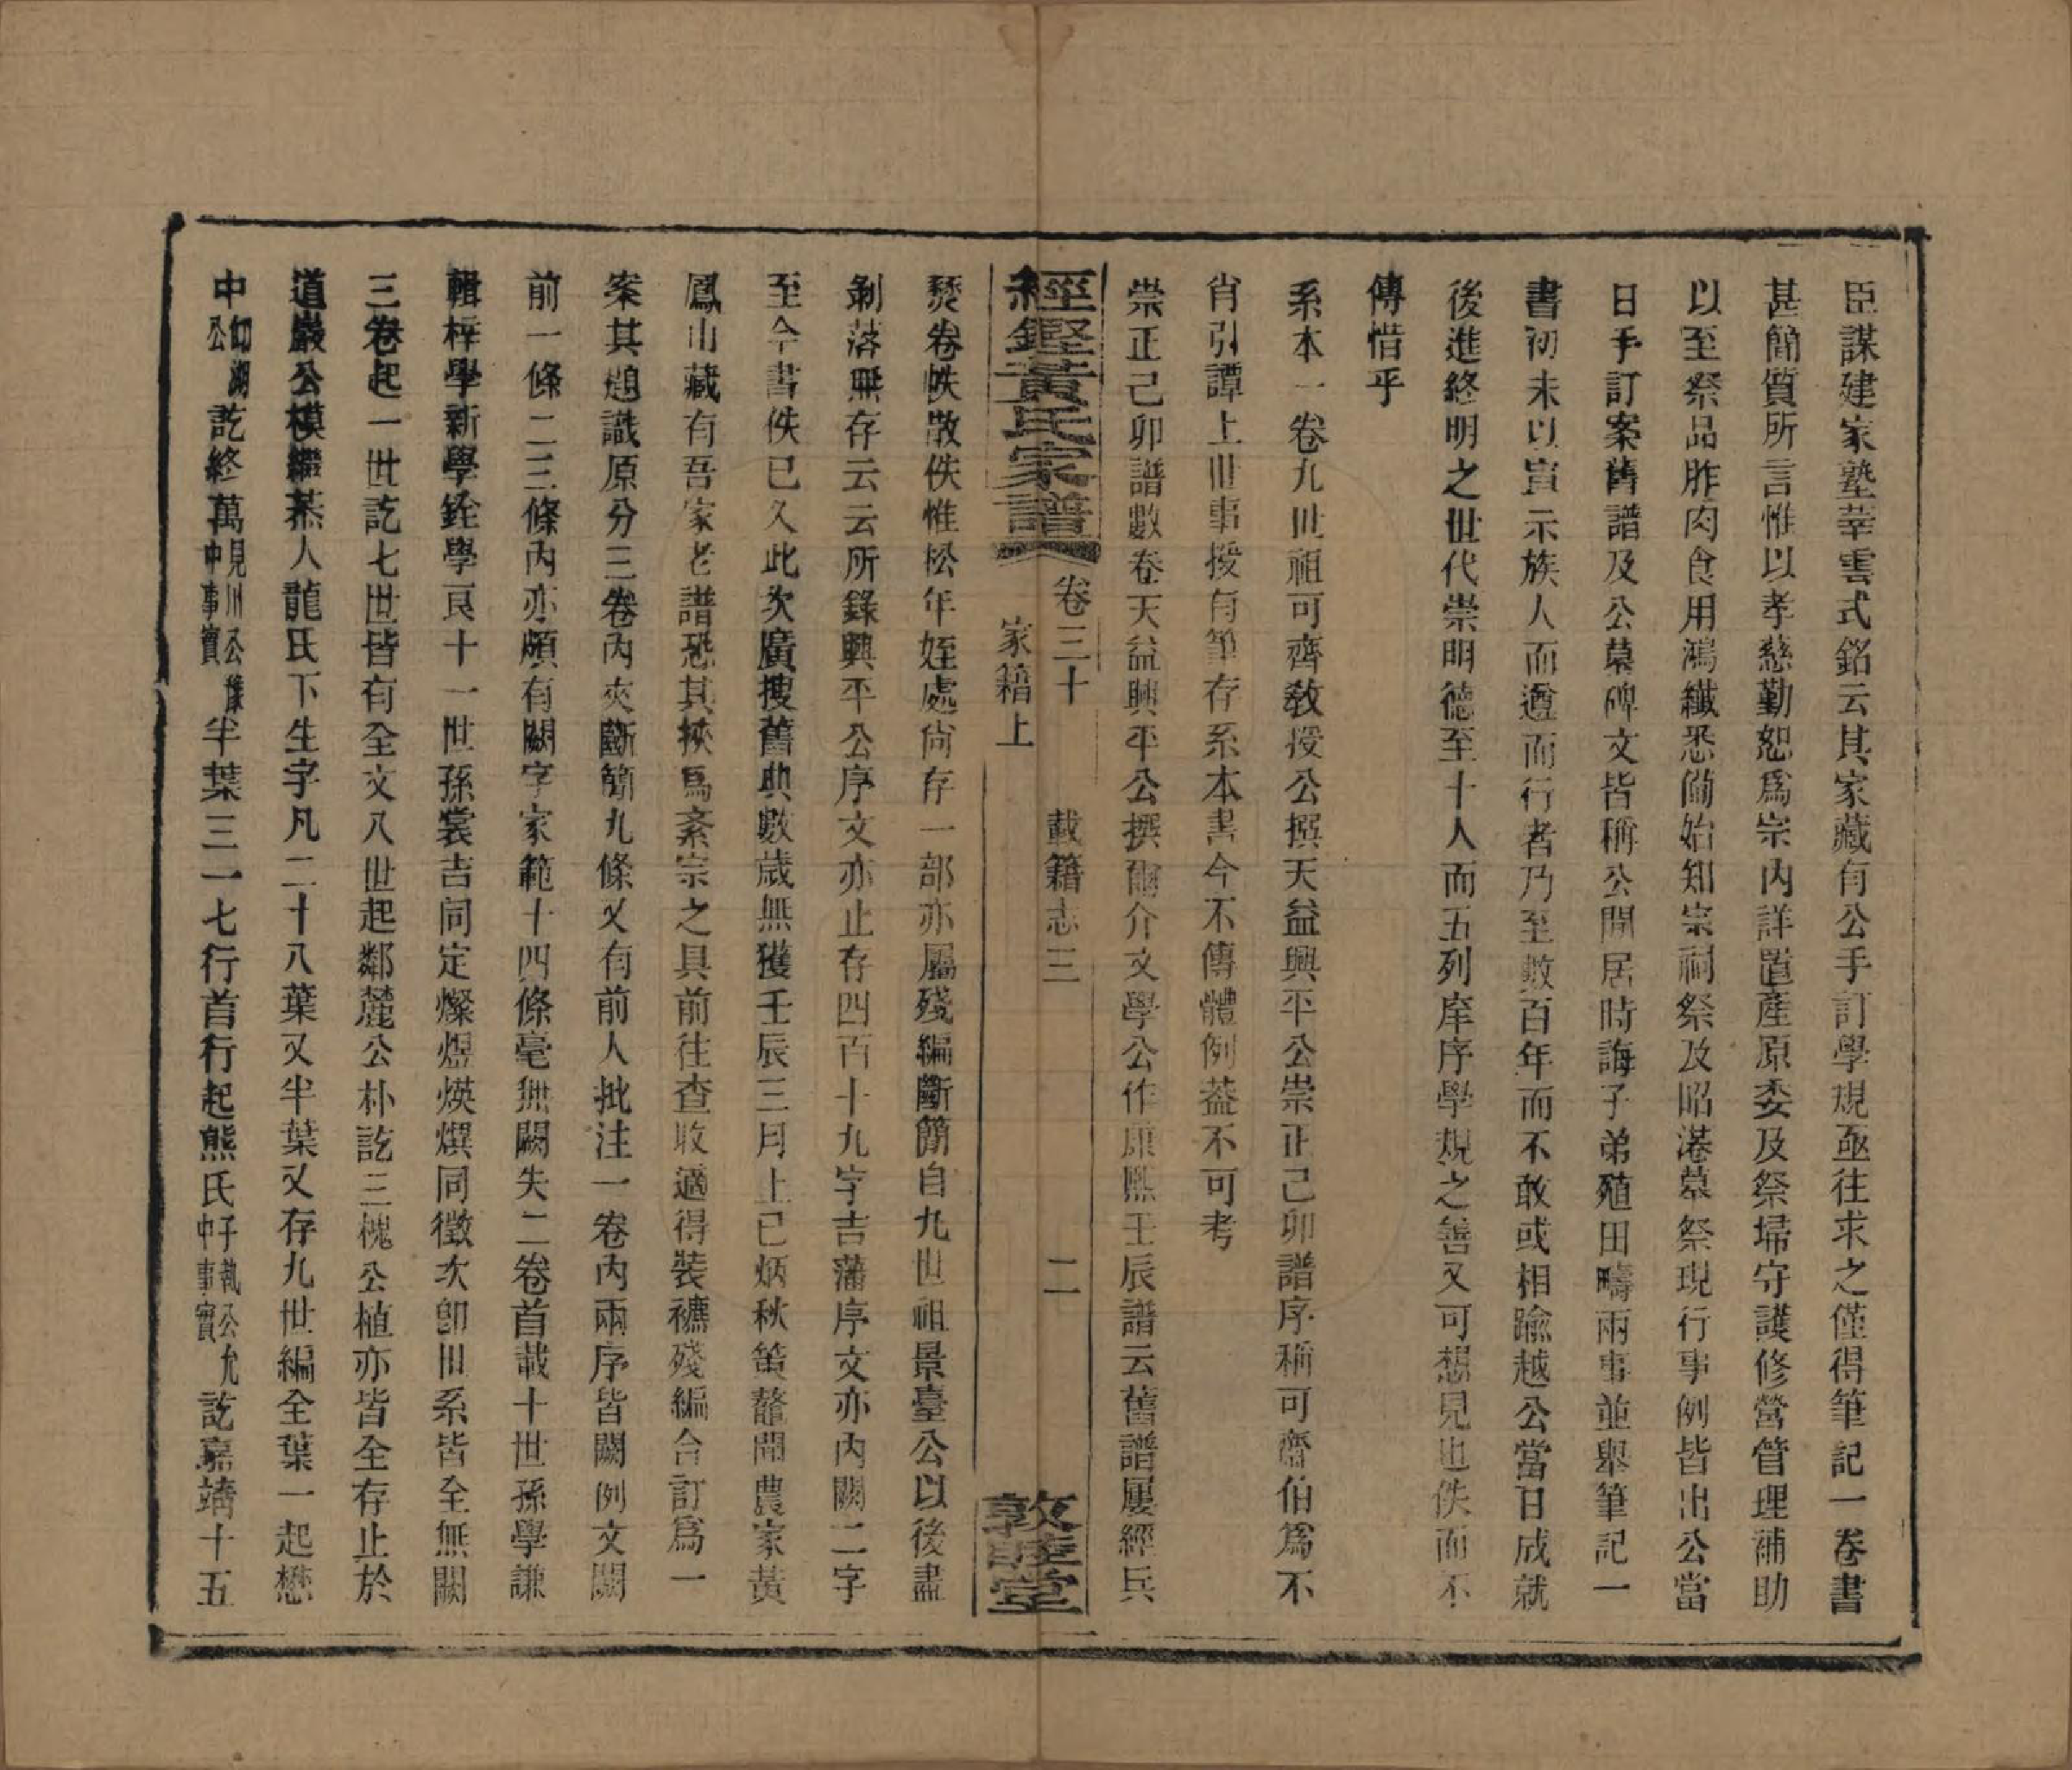 臣謀建家塾莘雲式銘云其家藏有公手訂學規亟往求之僅得筆記一卷書
甚簡質所言惟以孝慈勤恕爲宗內詳置產原委及祭埽守護修營管理補助
以至祭品胙肉食用鴻纖悉備始知宗祠祭及昭港墓祭現行事例皆出公當
日手訂案舊譜及公墓碑文皆稱公閒居時誨子弟殖田疇兩事並舉筆記一
書初未以宣示族人而遵而行者乃至數百年而不敢或相踰越公當日成就
後進終明之世代崇明德至十人而五列庠序學規之善又可想見也佚而不
傳惜乎
系本一卷九世祖可齋敎授公撰天益興平公崇正己卯譜序稱可齋伯爲不
肖引譚上世事授有筆存系本書今不傳體例葢不可考
崇正己卯譜數卷天益興平公撰爾介文學公作康熙壬辰譜云舊譜屢經兵
經鏗黃氏家譜 卷三十 載籍志三 二
家籍上 敦睦堂
燹卷帙散佚惟松年姪處尙存一部亦屬殘編斷簡自九世祖景臺公以後盡
剝落無存云云所錄興平公序文亦止存四百十九字吉藩序文亦內闕二字
至今書佚已久此次廣搜舊典數歲無獲壬辰三月上已炳秋茧鼇聞農家黃
鳳山藏有吾家老譜恐其挾爲紊宗之具前往查收適得裝褫殘編合訂爲一
案其題識原分三卷內夾斷簡九條又有前人批注一卷內兩序皆闕例文闕
前一條二三條內亦頗有闕字家範十四條毫無闕失二卷首載十世孫學謙
輯梓學新學銓學良十一世孫裳吉同定燦煜煐熼同徵次卽世系皆全無闕
三卷起一世訖七世皆有全文八世起鄰麓公朴訖三槐公植亦皆全存止於
道巖公模繼蒸人龍氏下生字凡二十八葉又半葉又存九世編全葉一起懋
中仰湖公訖終萬見川公豫中事實半葉三一七行首行起熊氏子執公允中事實訖嘉靖十五